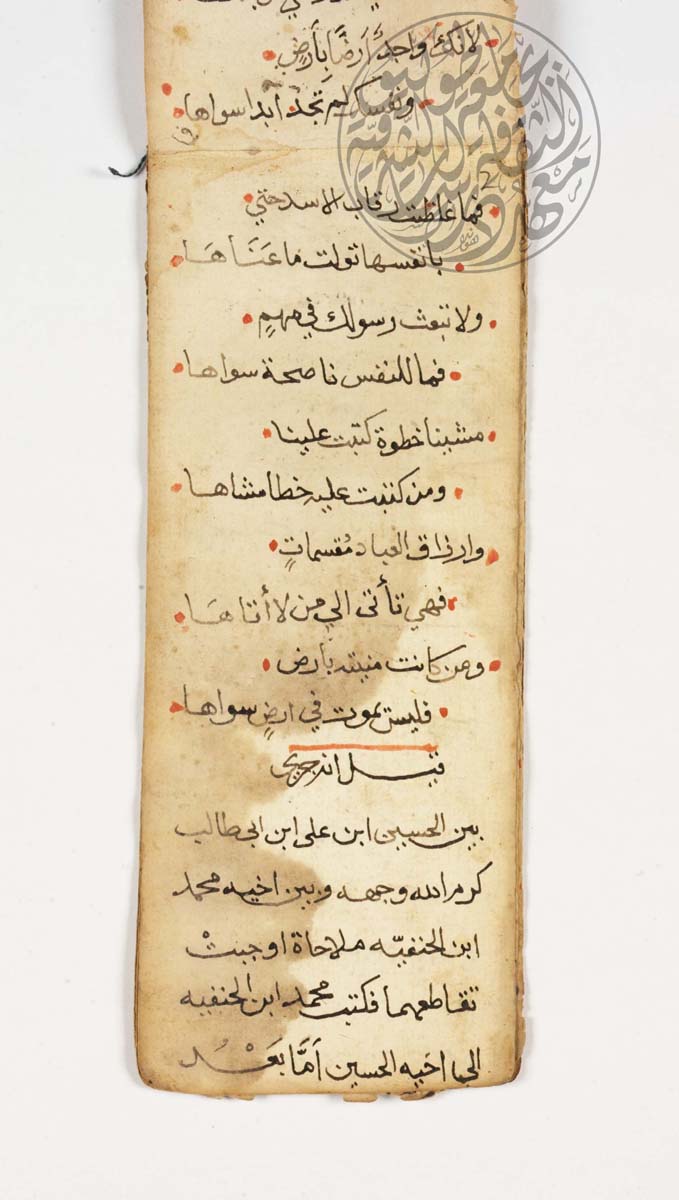 لانك واحد أرضًا بأرضٍ
ونفسك لم تجد ابدا سواها
2
فما غلظت رقاب الاسد حتي
بانفسها تولت ما عَنَاهَا
ولا تبعث رسولك في مهمٍ
فما للنفس ناصحة سواها
مشيناخطوة كتبت علينا
ومن كتبت عليه خطا مشاها
وارزاق العباد مُقسماتٍ
فهي تأتى الي من لا أتاهَا
ومن كانت منيته بأرض
فليس يموت في ارضٍ سواها
قيل انه جري
بين الحسين ابن على ابن ابى طالب
كرم الله وجهه وبين اخيه محمد
ابن الحنفيّه ملاحاة اوجبتْ
تقاطعهما فكتب محمد ابن الحنفيه
الي اخيه الحسين اَمَّا بَعْد